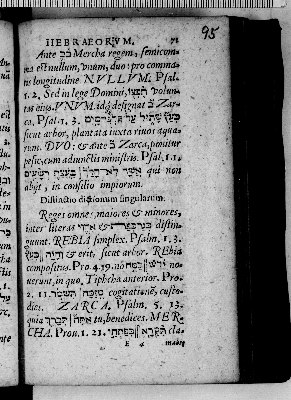 95
HEBRAEORVM. 71
Ante Mercha regem, semicom-
na est nullum, vnum, duo: pro comma-
tis longitudine NVLLVM. Psal.
1. 2. Sed in lege Domini, חפצו volun-
tas eius. VNVM. idq; designat Zar-
ca, Psal. 1. 3. כעץ שתול על פלגי מים
sicut arbor, plantata iuxta riuos aqua-
rum. DVO: & ante Zarca, ponitur
pesic, cum adiunctis ministris. Psal. 1.1.
אשר לא הלך בעצת רשעים qui non
abijt, in consilio impiorum.
Distinctio dictionum singularum.
Reges omnes, maiores & minores,
inter literas distin-
guunt. REBIA simplex. Psalm. 1. 3.
והיה כעץ & erit, sicut arbor. REbia
compositus. Pro. 4.19. no
uerunt, in quo, Tiphcha anterior. Pro-
2. 11. מזמה תשמר cogitatione, custo-
diet. ZARCA. Psalm. 5. 13.
quia אתה תברך tu, benedices. MER-
CHA. Prou. 1. 21. תקרא בפתחי cla-
E 4 mabit